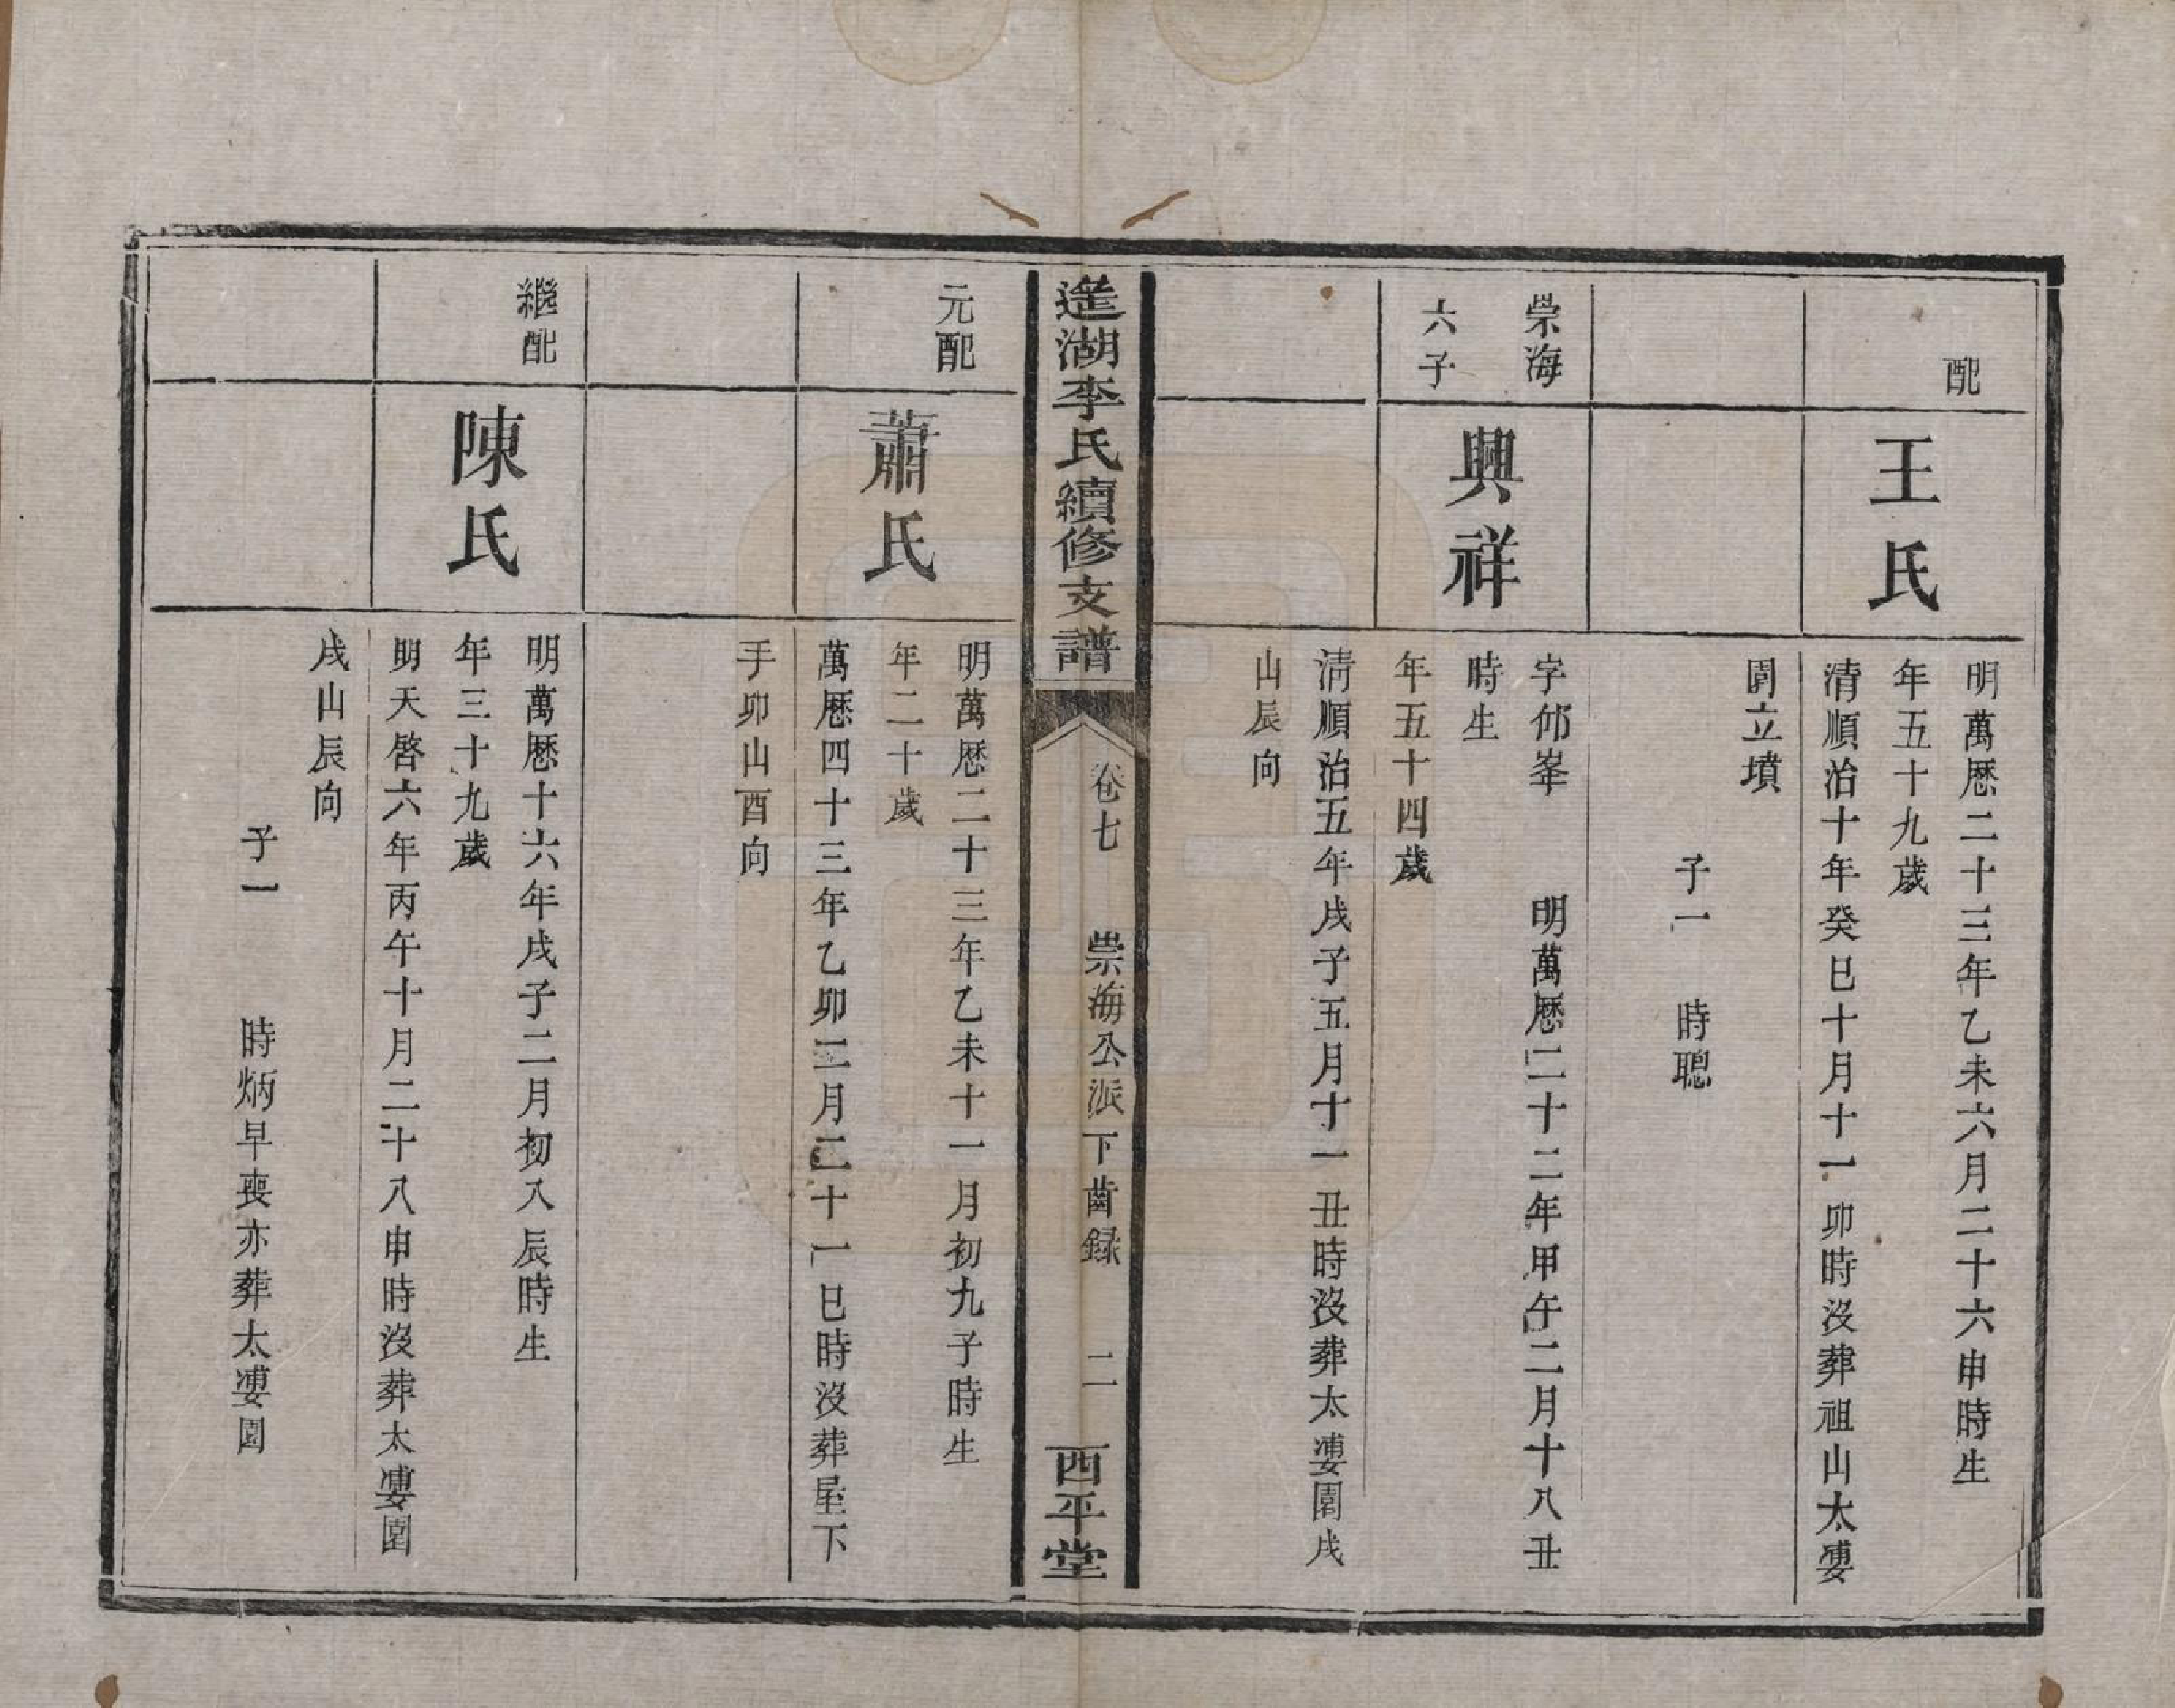 配
王氏
明萬厯二十三年乙未六月二十六申時生
年五十九歲
清順治十年癸巳十月十一卯時沒葬祖山太塿
園立墳
子一　時聰
崇海
六子
興祥
字邰峯　明萬厯二十二年甲午二月十八丑
時生
年五十四歲
清順治五年戌子五月十一丑時沒葬太塿園戌
山辰向
遙湖李氏續修支譜
卷七　崇海公派下齒録　二
西平堂
元配
蕭氏
明萬厯二十三年乙未十一月初九子時生
年二十歲
萬厯四十三年乙卯二月二十一巳時沒葬屋下
手卯山酉向
繼配
陳氏
明萬厯十六年戌子二月初八辰時生
年三十九歲
明天啓六年丙午十月二十八申時沒葬太塿園
戌山辰向
子一　時炳早喪亦葬太塿園